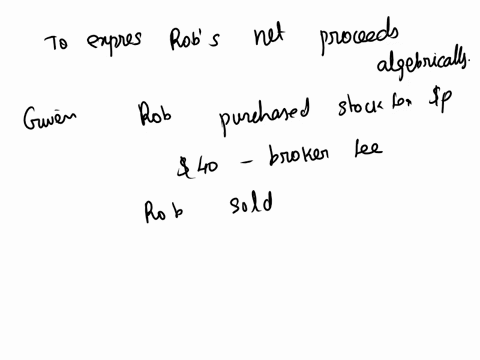 To expres Rob's net proceeds
algebrically.
Given Rob purchased stock for $p
$40 - broker fee
Rob sold